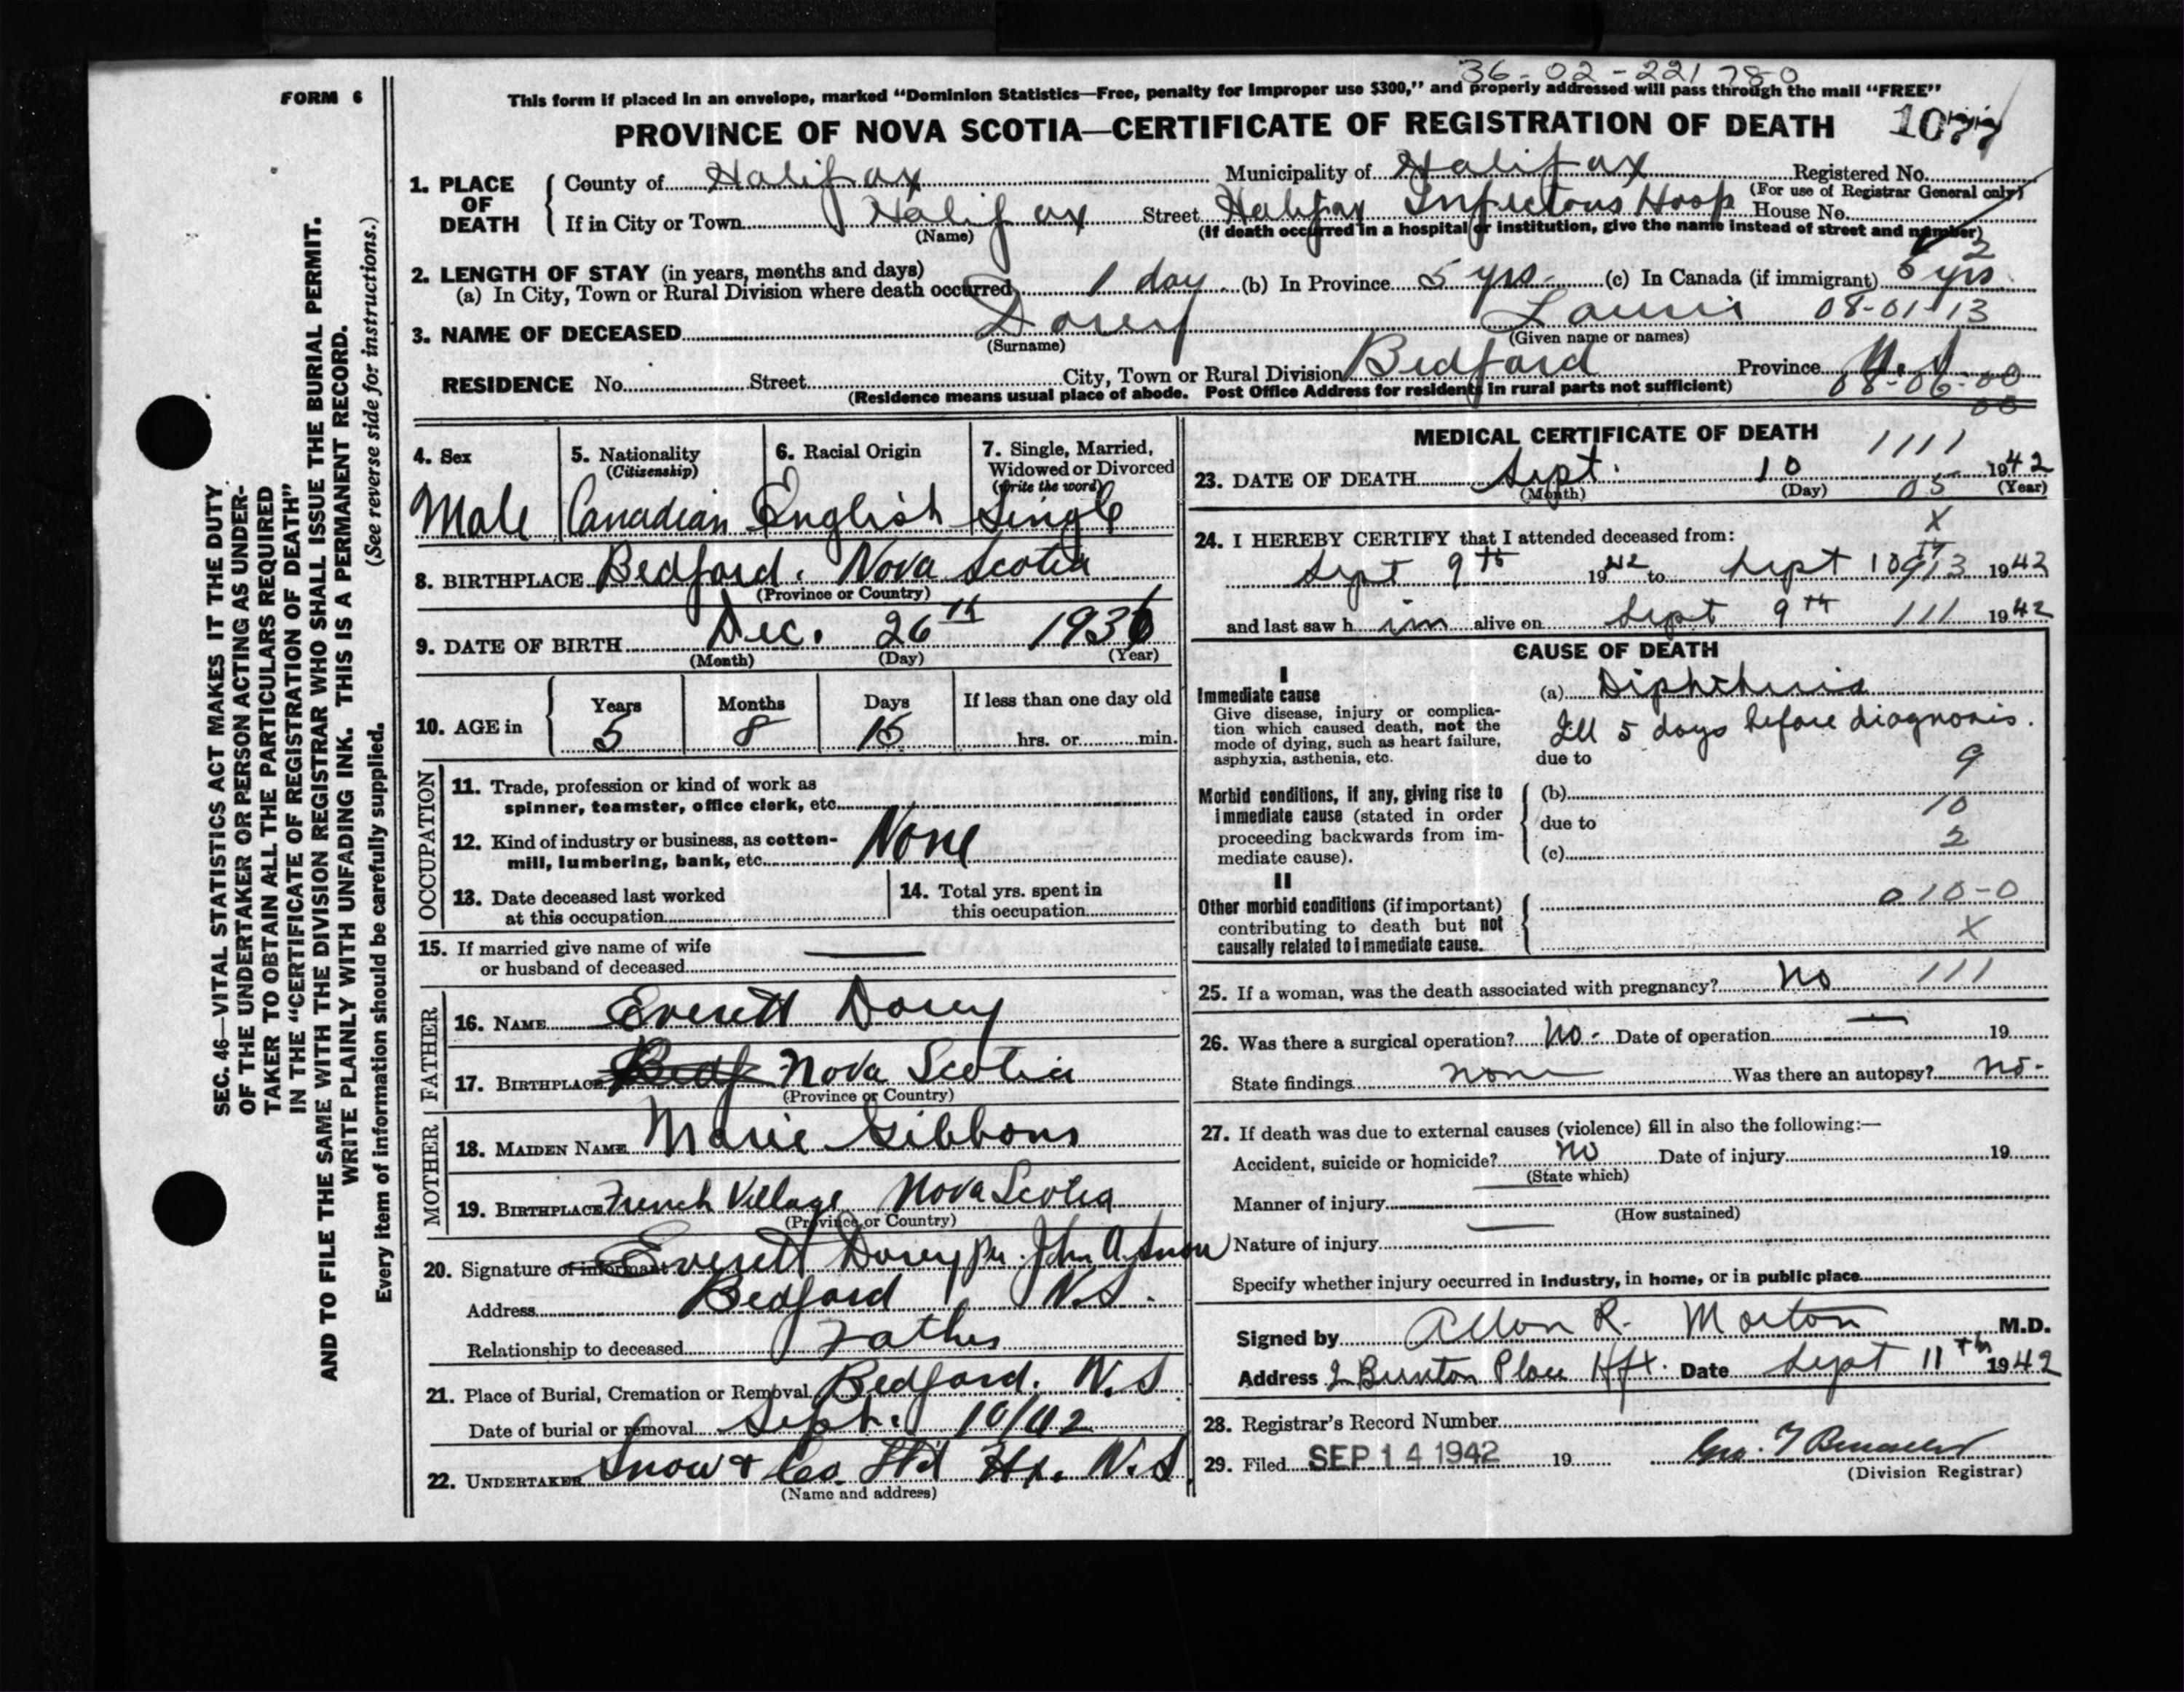 36-02-221 780
FORM 6
This form if placed in an envelope, marked "Dominion Statistics—Free, penalty for improper use $300," and properly addressed will pass through the mail "FREE"
PROVINCE OF NOVA SCOTIA—CERTIFICATE OF REGISTRATION OF DEATH
1077
1. PLACE OF DEATH
County of Halifax Municipality of Halifax Registered No.
(For use of Registrar General only)
If in City or Town Halifax Street Halifax Infectous Hosp House No.
(Name) (If death occurred in a hospital or institution, give the name instead of street and number)
2
2. LENGTH OF STAY (in years, months and days)
(a) In City, Town or Rural Division where death occurred 1 day (b) In Province 5 yrs. (c) In Canada (if immigrant) 5 yrs
3. NAME OF DECEASED Dorey 08-01-13
(Surname) (Given name or names)
RESIDENCE No. Street City, Town or Rural Division Bedford Province N.S
(Residence means usual place of abode. Post Office Address for residents in rural parts not sufficient) 08-06-00
00
4. Sex Male
5. Nationality (Citizenship) Canadian
6. Racial Origin English
7. Single, Married, Widowed or Divorced (write the word) Single
8. BIRTHPLACE Bedford. Nova Scotia
(Province or Country)
9. DATE OF BIRTH Dec. 26th 1936
(Month) (Day) (Year)
10. AGE in Years 5 Months 8 Days 15 If less than one day old hrs. or min.
OCCUPATION
11. Trade, profession or kind of work as spinner, teamster, office clerk, etc.
12. Kind of industry or business, as cotton-mill, lumbering, bank, etc. None
13. Date deceased last worked at this occupation
14. Total yrs. spent in this occupation
15. If married give name of wife or husband of deceased —
FATHER
16. NAME Everett Dorey
17. BIRTHPLACE Bedf Nova Scotia
(Province or Country)
MOTHER
18. MAIDEN NAME Marie Gibbons
19. BIRTHPLACE French Village Nova Scotia
(Province or Country)
20. Signature of informant Everett Dorey per John A. Snow
Address Bedford N.S.
Relationship to deceased Father
21. Place of Burial, Cremation or Removal Bedford. N.S
Date of burial or removal Sept. 10/42
22. UNDERTAKER Snow & Co. Ltd Hx. N.S
(Name and address)
MEDICAL CERTIFICATE OF DEATH
1111
23. DATE OF DEATH Sept. 10 1942
(Month) (Day) 05 (Year)
X
24. I HEREBY CERTIFY that I attended deceased from:
Sept 9th 1942 to Sept 10th 913 1942
and last saw him alive on Sept 9th 111 1942
CAUSE OF DEATH
I
Immediate cause
Give disease, injury or complication which caused death, not the mode of dying, such as heart failure, asphyxia, asthenia, etc.
(a) Diphtheria
Ill 5 days before diagnosis.
due to 9
Morbid conditions, if any, giving rise to immediate cause (stated in order proceeding backwards from immediate cause).
(b)
10
due to
2
(c)
II
Other morbid conditions (if important) contributing to death but not causally related to immediate cause.
010-0
X
25. If a woman, was the death associated with pregnancy? no 111
26. Was there a surgical operation? no - Date of operation — 19
State findings none Was there an autopsy? no-
27. If death was due to external causes (violence) fill in also the following:—
Accident, suicide or homicide? no Date of injury 19
(State which)
Manner of injury —
(How sustained)
Nature of injury —
Specify whether injury occurred in industry, in home, or in public place
Signed by Allan R. Morton M.D.
Address 2 Place Hfx. Date Sept 11th 1942
28. Registrar's Record Number
29. Filed SEP 14 1942 19
(Division Registrar)
SEC. 46—VITAL STATISTICS ACT MAKES IT THE DUTY
OF THE UNDERTAKER OR PERSON ACTING AS UNDER-
TAKER TO OBTAIN ALL THE PARTICULARS REQUIRED
IN THE "CERTIFICATE OF REGISTRATION OF DEATH"
AND TO FILE THE SAME WITH THE DIVISION REGISTRAR WHO SHALL ISSUE THE BURIAL PERMIT.
WRITE PLAINLY WITH UNFADING INK. THIS IS A PERMANENT RECORD.
(See reverse side for instructions.)
Every item of information should be carefully supplied.